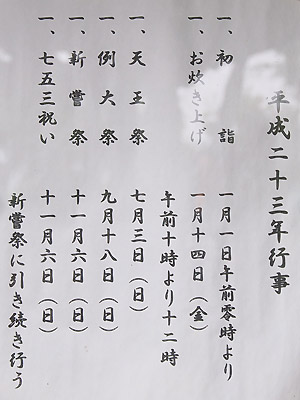 平成二十三年行事
一、初詣 一月一日午前零時より
一、お炊き上げ 一月十四日（金）
午前十時より十二時
一、天王祭 七月三日（日）
一、例大祭 九月十八日（日）
一、新嘗祭 十一月六日（日）
一、七五三祝い 十一月六日（日）
新嘗祭に引き続き行う